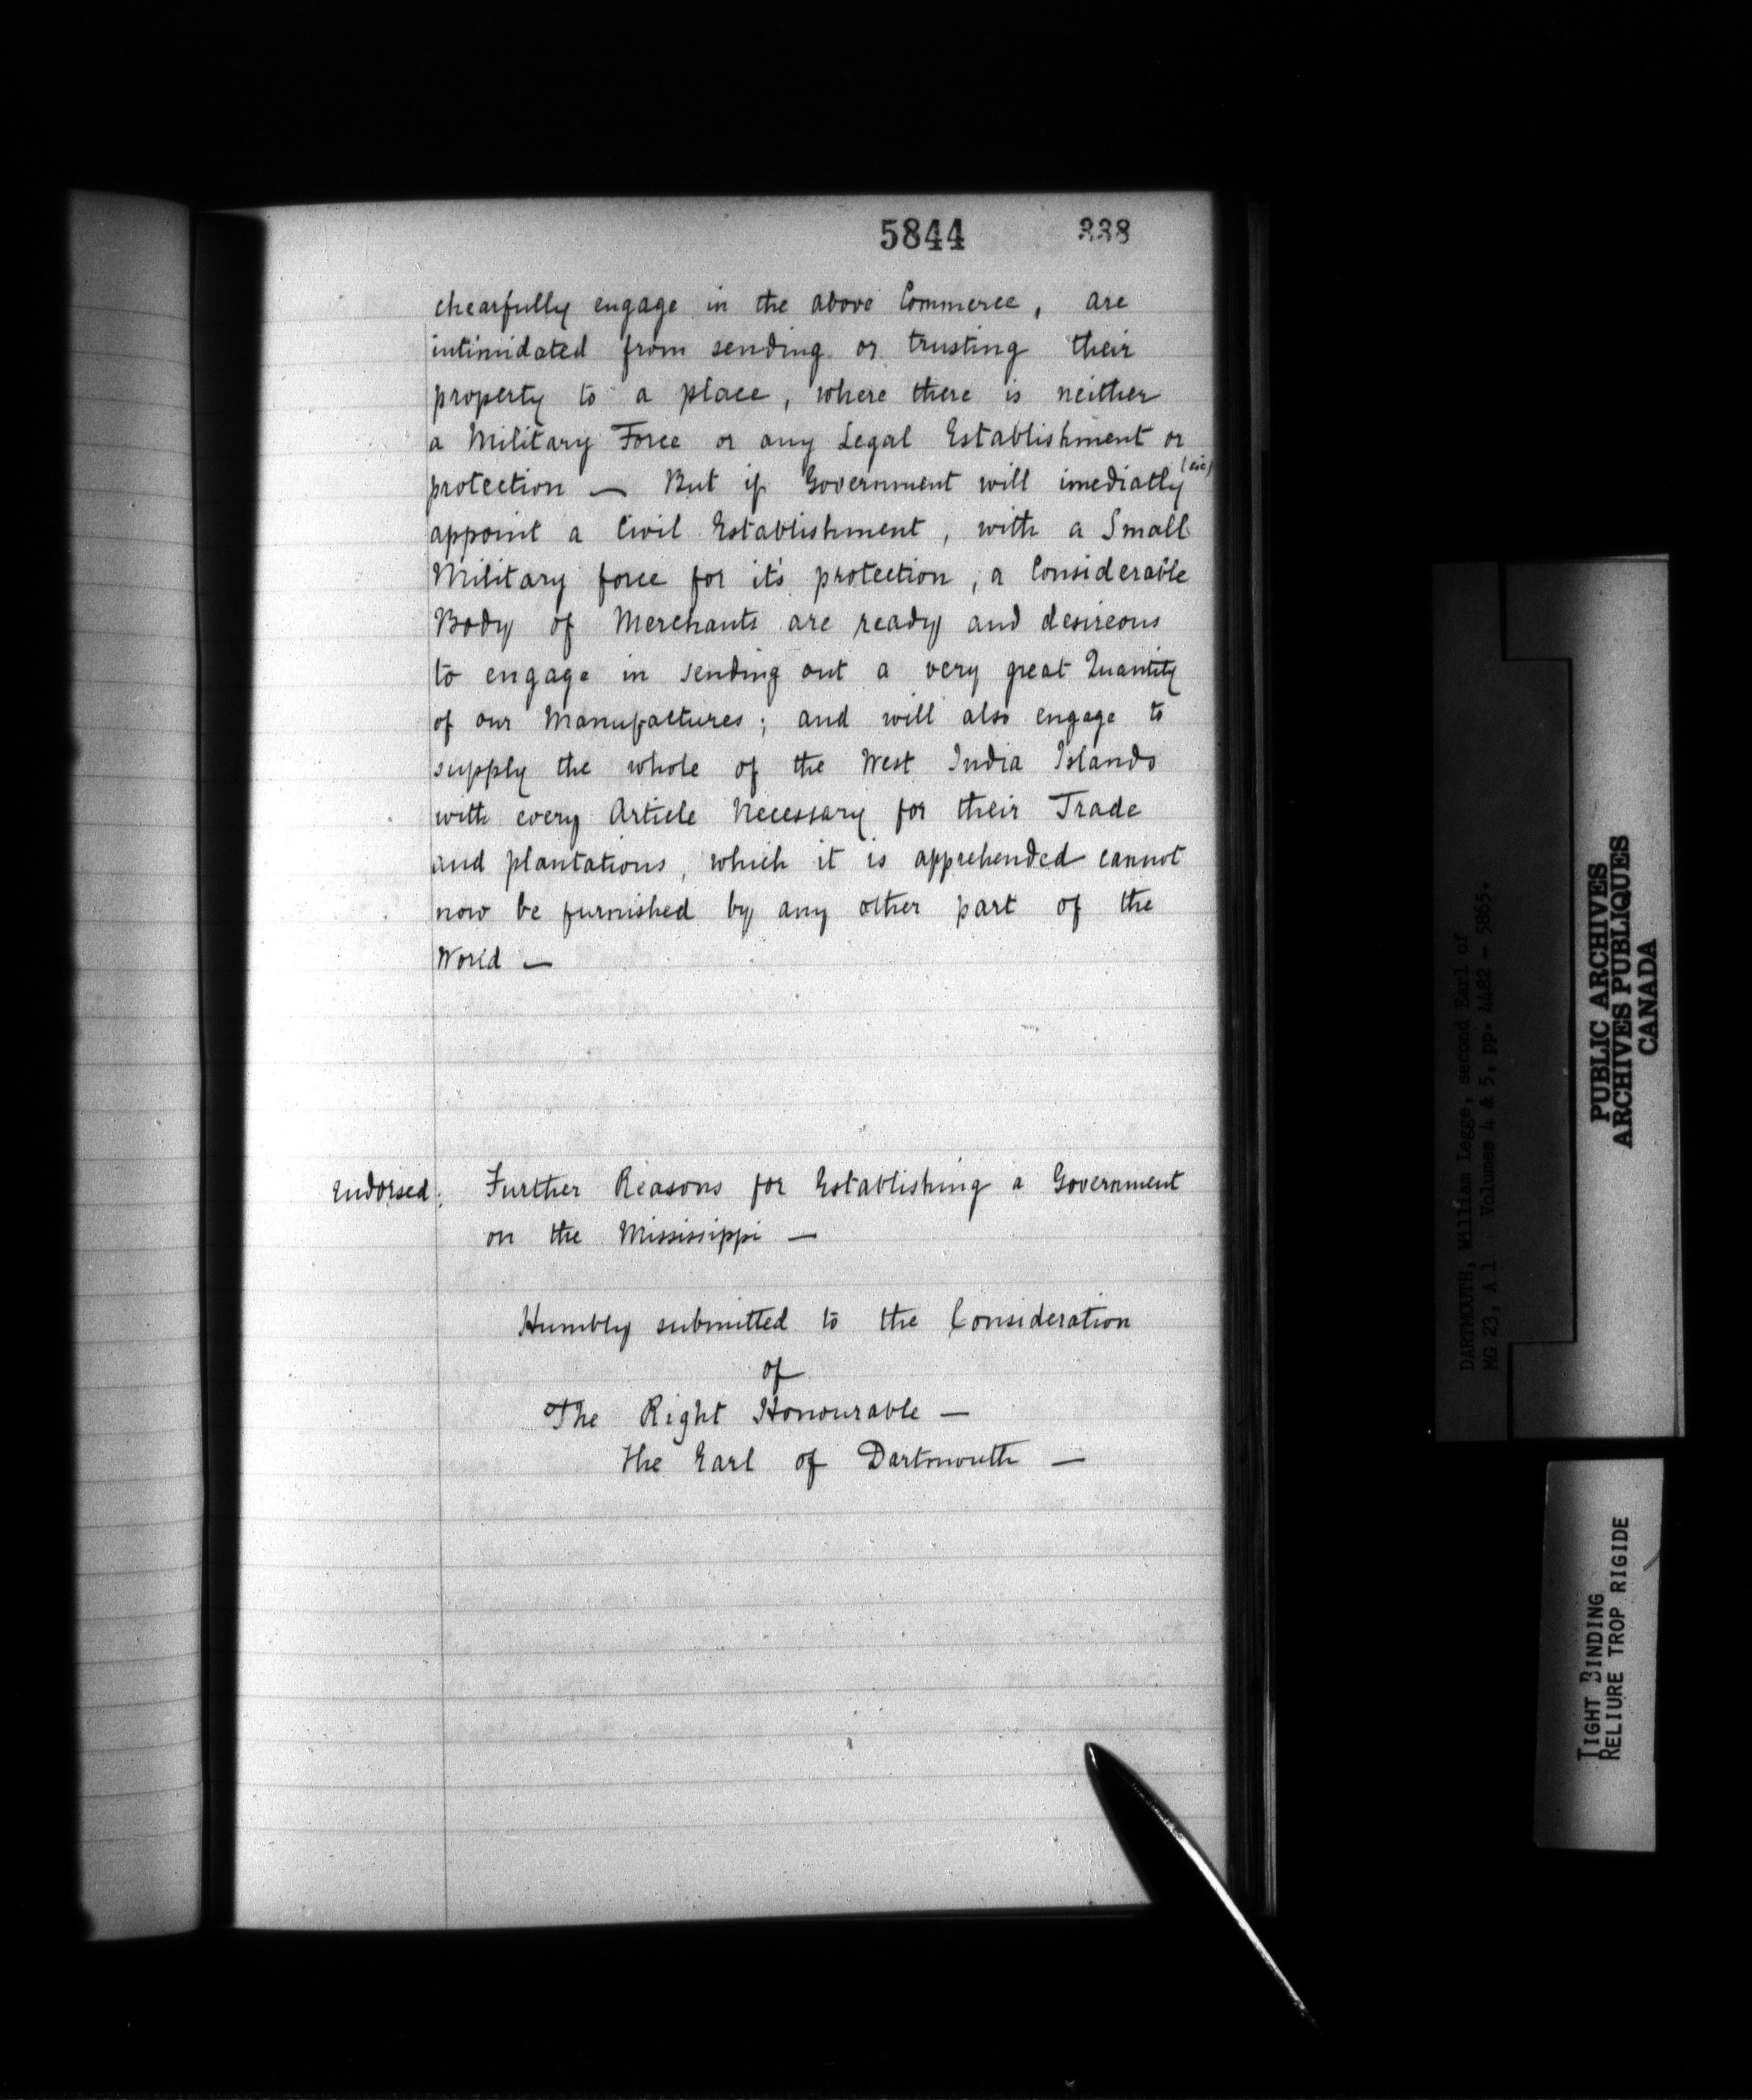 5844 338
chearfully engage in the above Commerce, are
intimidated from sending or trusting their
property to a place, where there is neither
a Military Force or any Legal Establishment or
protection — But if Government will imediatly (sic)
appoint a Civil Establishment, with a Small
Military force for it's protection, a Considerable
Body of Merchants are ready and desireous
to engage in sending out a very great Quantity
of our Manufactures; and will also engage to
supply the whole of the West India Islands
with every Article Necessary for their Trade
and plantations, which it is apprehended cannot
now be furnished by any other part of the
World —
Endorsed: Further Reasons for Establishing a Government
on the Mississippi —
Humbly submitted to the Consideration
of
The Right Honourable —
the Earl of Dartmouth —
DARTMOUTH, William Legge, second Earl of
MG 23, A 1 Volumes 4 & 5, pp. 4482 - 5865.
PUBLIC ARCHIVES
ARCHIVES PUBLIQUES
CANADA
TIGHT BINDING
RELIURE TROP RIGIDE